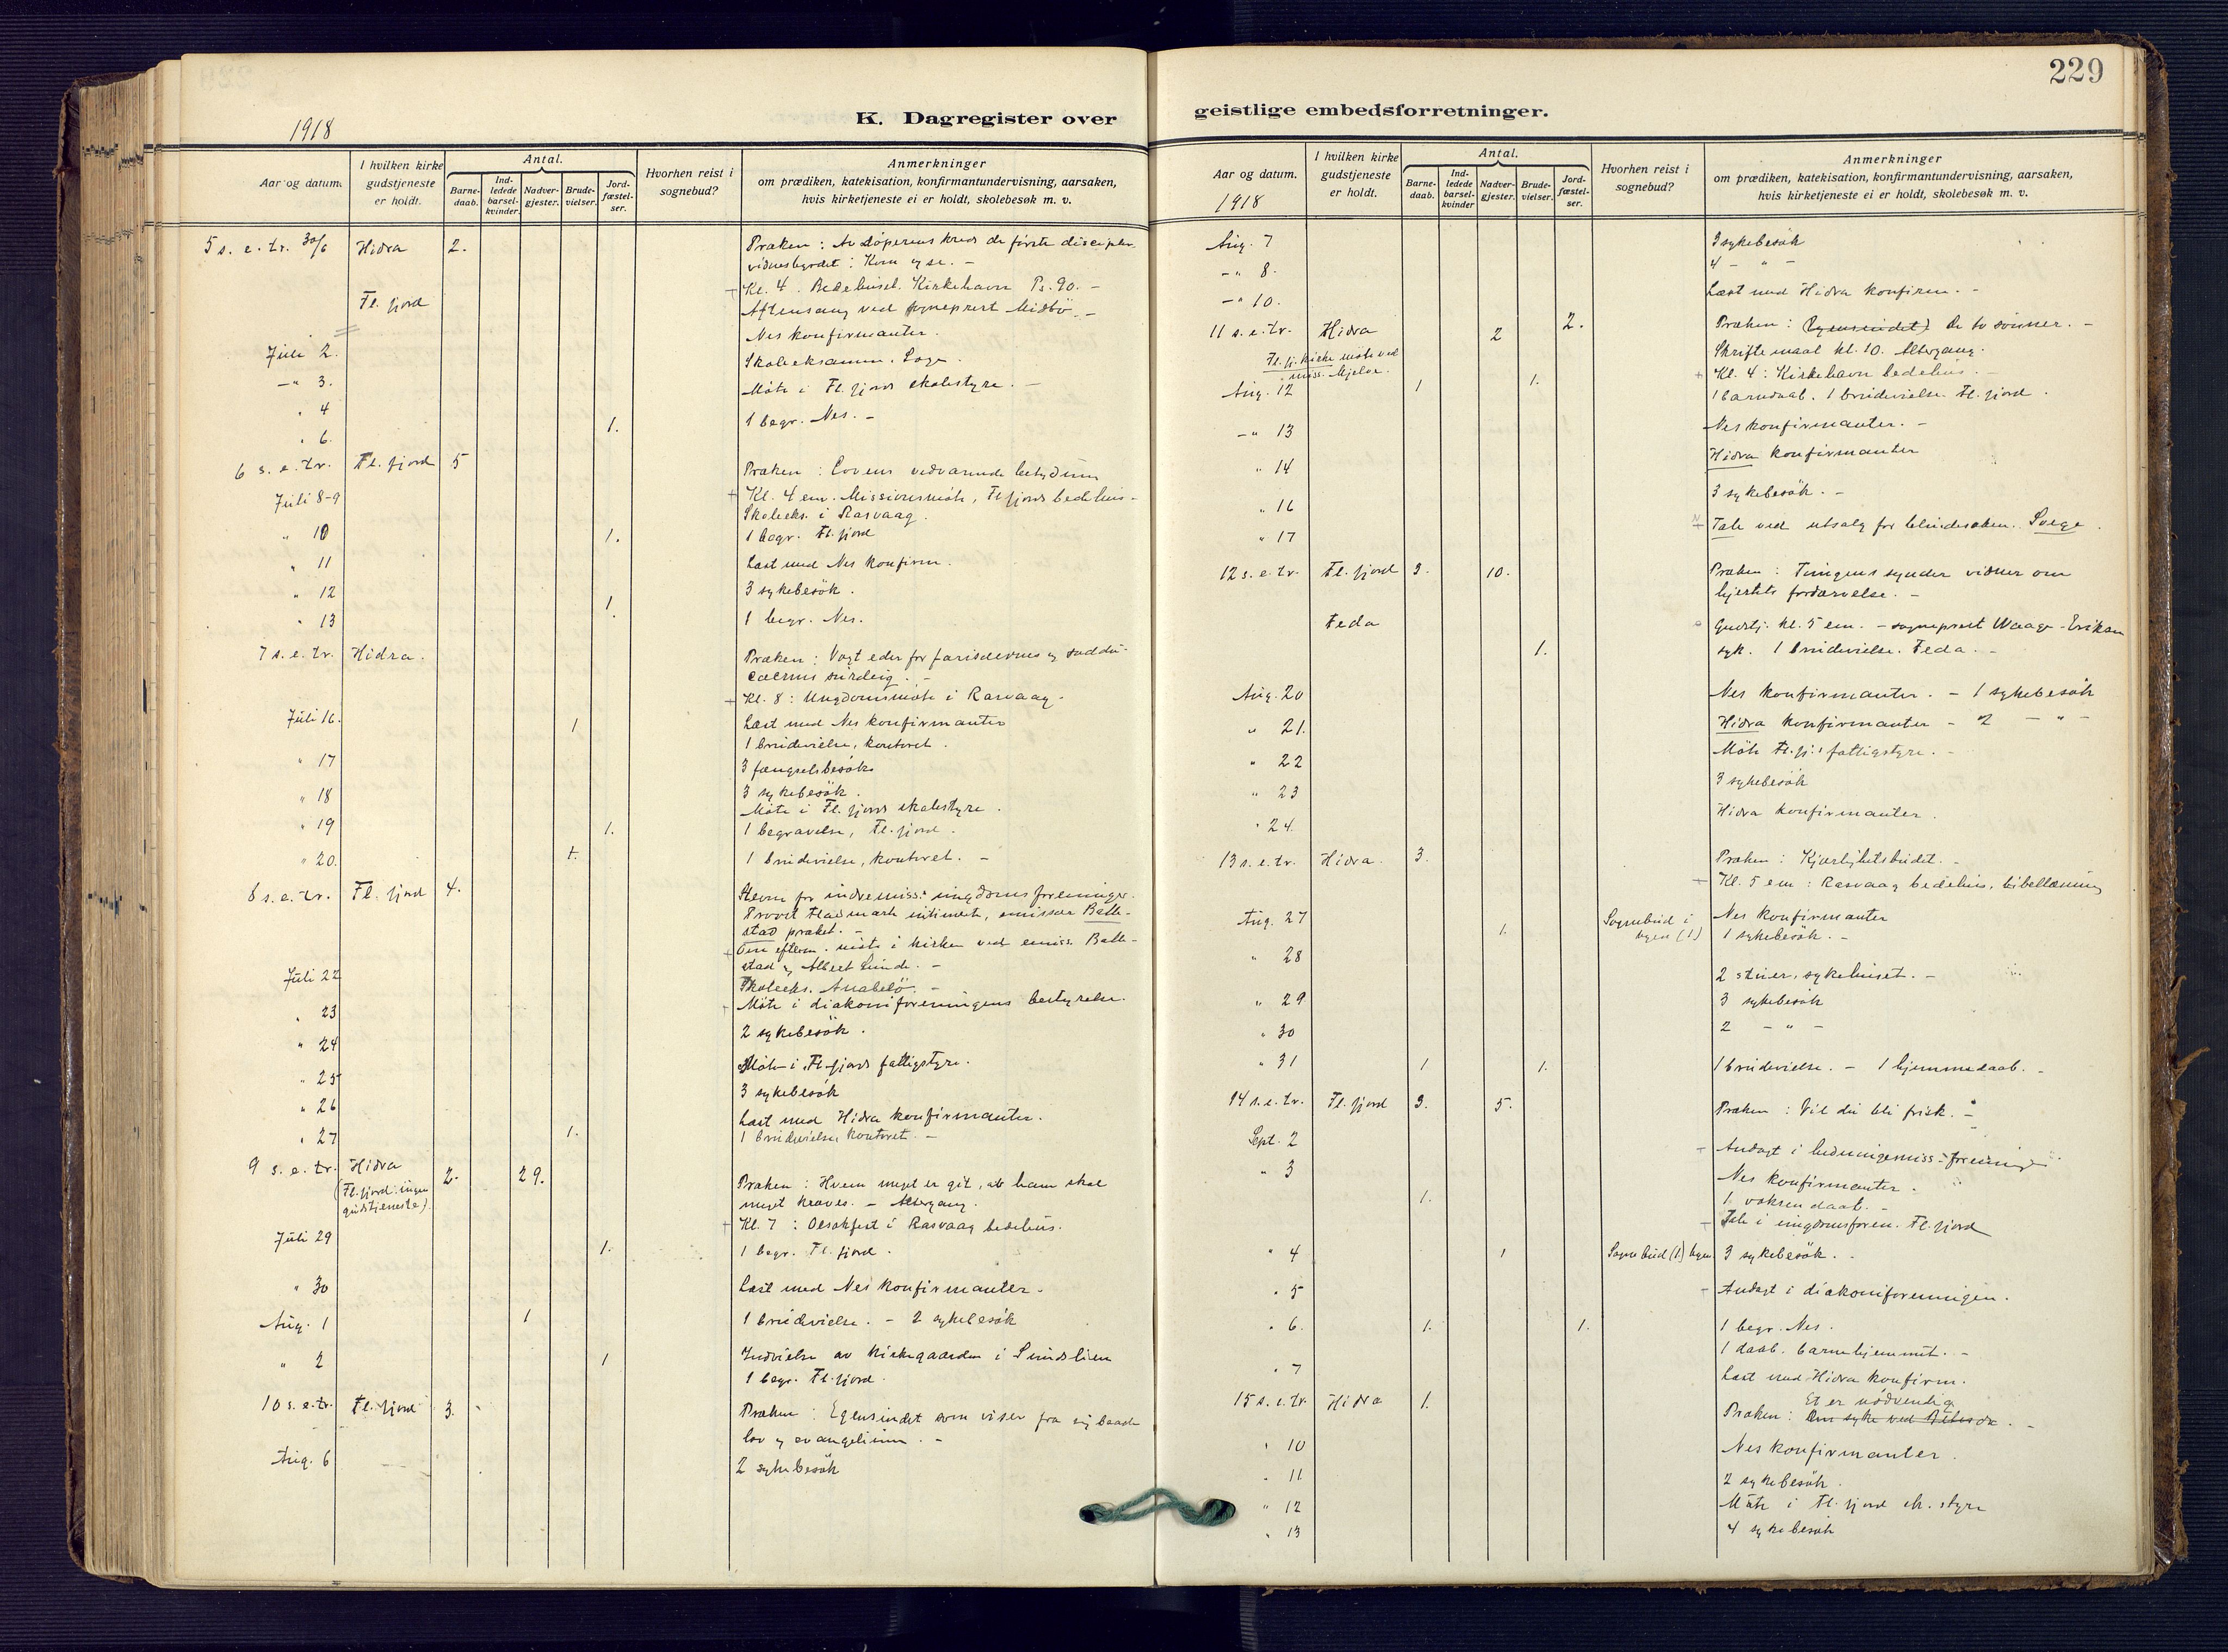 229
K. Dagregister over
geistlige embedsforretninger.
1918
Aar og datum.
I hvilken kirke gudstjeneste er holdt.
Antal.
Barne-daab.
Ind-ledede barsel-kvinder.
Nadver-gjester.
Brude-vielser.
Jord-fæstel-ser.
Hvorhen reist i sognebud?
Anmerkninger
om prædiken, katekisation, konfirmantundervisning, aarsaken,
hvis kirketjeneste ei er holdt, skolebesøk m. v.
5 s. e. tr. 30/6 Hidra 2. Præken: Av döperens kreds de förste disciple.
vidnesbyrdet: Kom og se. -
Kl. 4. Bedehuset. Kirkehavn Ps. 90. -
Fl. fjord Aftensang ved sogneprest Midbö. -
Nes konfirmanter.
Juli 2. Skoleeksamen. Loge.
-"- 3. Möte i Fl. fjords skolestyre. -
" 4 1. 1 begr. Nes. -
" 6.
6 s. e. tr. Fl. fjord 5 Præken: Lovens vedvarende betydning
Kl. 4 em. Missionsmöte, Fl. fjords bedehus -
Juli 8-9 Skoleeks. i Rasvaag.
" 10 1. 1 begr. Fl. fjord
" 11 Læst med Nes konfirm.
" 12 3 sykebesök.
" 13 1. 1 begr. Nes.
7 s. e. tr. Hidra. Præken: Vogt eder for farisæernes og saddu-
cæernes surdeig. -
Kl. 8: Ungdomsmöte i Rasvaag.
Juli 16. 1 Læst med Nes konfirmanter
1 brudevielse, kontoret.
" 17 3 fængselsbesök
" 18 3 sykebesök.
Möte i Fl. fjords skolestyre.
" 19 1. 1 begravelse, Fl. fjord.
" 20. 1. 1 brudevielse, kontoret. -
8 s. e. tr. Fl. fjord 4. Stevne for indremiss. ungdomsforeninger.
stad præket. -
Om efterm. möte i kirken ved emiss. Balle-
stad og Albert Lunde. -
Juli 22 Skoleeks. Anabelö. -
Möte i diakoniforeningens bestyrelse.
" 23 2 sykebesök.
" 24 Möte i Fl. fjords fattigstyre.
" 25 3 sykebesök
" 26 Læst med Hidra konfirmanter.
" 27 1. 1 brudevielse kontoret. -
9 s. e. tr. Hidra 2. 29. Præken: Hvem meget er git, av ham skal
(Fl. fjord: ingen gudstjeneste). meget kræves. - Altergang.
Kl. 7: Olsokfest i Rasvaag bedehus.
Juli 29 1. 1 begr. Fl. fjord.
" 30 Læst med Nes konfirmanter.
Aug. 1 1 1 brudevielse. - 2 sykebesök
" 2 1 Indvielse av kirkegaarden i Sundslien
1 begr. Fl. fjord.
10 s. e. tr. Fl. fjord 3. Præken: Egensindet som viser fra sig baade
lov og evangelium. -
Aug. 6 2 sykebesök
Aar og datum.
1918
I hvilken kirke gudstjeneste er holdt.
Antal.
Barne-daab.
Ind-ledede barsel-kvinder
Nadver-gjester.
Brude-vielser.
Jord-fæstel-ser.
Hvorhen reist i sognebud?
Anmerkninger
om prædiken, katekisation, konfirmantundervisning, aarsaken,
hvis kirketjeneste ei er holdt, skolebesøk m. v.
Aug. 7 3 sykebesök
-"- 8. 4 - " -
-"- 10. Læst med Hidra konfirm. -
11 s. e. tr. Hidra 2 2. Præken: (Egensindet) De to sönner. -
Skriftemaal kl. 10. Altergang.
Fl. fj. kirke möte ved miss. Mjelve. Kl. 4: Kirkehavn bedehus. -
Aug. 12 1 1. 1 barnedaab. 1 brudevielse. Fl. fjord.
-"- 13 Nes konfirmanter. -
" 14 Hidra konfirmanter
" 16 3 sykebesök. -
" 17 Tale ved utsalg for blindesaken.
12 s. e. tr. Fl. fjord 3. 10. Præken: Tungens synder vidner om
hjertets fordærvelse. -
Feda Gudstj. kl. 5 em. - sogneprest Waage-Eriksen
1. syk. 1 brudevielse. Feda. -
Aug. 20 Nes konfirmanter. - 1 sykebesök
" 21. Hidra konfirmanter - 2 - " -
" 22 Möte Fl. fj. fattigstyre. -
" 23 3 sykebesök
" 24. Hidra konfirmanter.
13 s. e. tr. Hidra. 3. Præken: Kjærlighetsbudet. -
Kl. 5 em: Rasvaag bedehus, bibellæsning
Aug. 27 1. Sognebud i byen (1) Nes konfirmanter
1 sykebesök. -
" 28 2 stuer, sykehuset. -
" 29 3 sykebesök
" 30 2 - " -
" 31 1 1. 1 brudevielse. - 1 hjemmedaab. -
14 s. e. tr. Fl. fjord 3. 5. Præken: Vil du bli frisk. -
Sept. 2 Andagt i
" 3 1. Nes konfirmanter.
1 voksendaab. -
Tale i ungdomsforen. Fl. fjord
" 4 1 Sognebud (1) byen 3 sykebesök. -
" 5 Andagt i diakoniforeningen.
" 6. 1. 1. 1 begr. Nes.
1 daab. barnehjemmet. -
" 7 Læst med Hidra konfirm.
15 s. e. tr. Hidra 1. Et er nödvendig
Præken: Den syke ved Betesda. -
" 10 Nes konfirmanter.
" 11 2 sykebesök.
" 12 Möte i Fl. fjord sk. styre
" 13 4 sykebesök